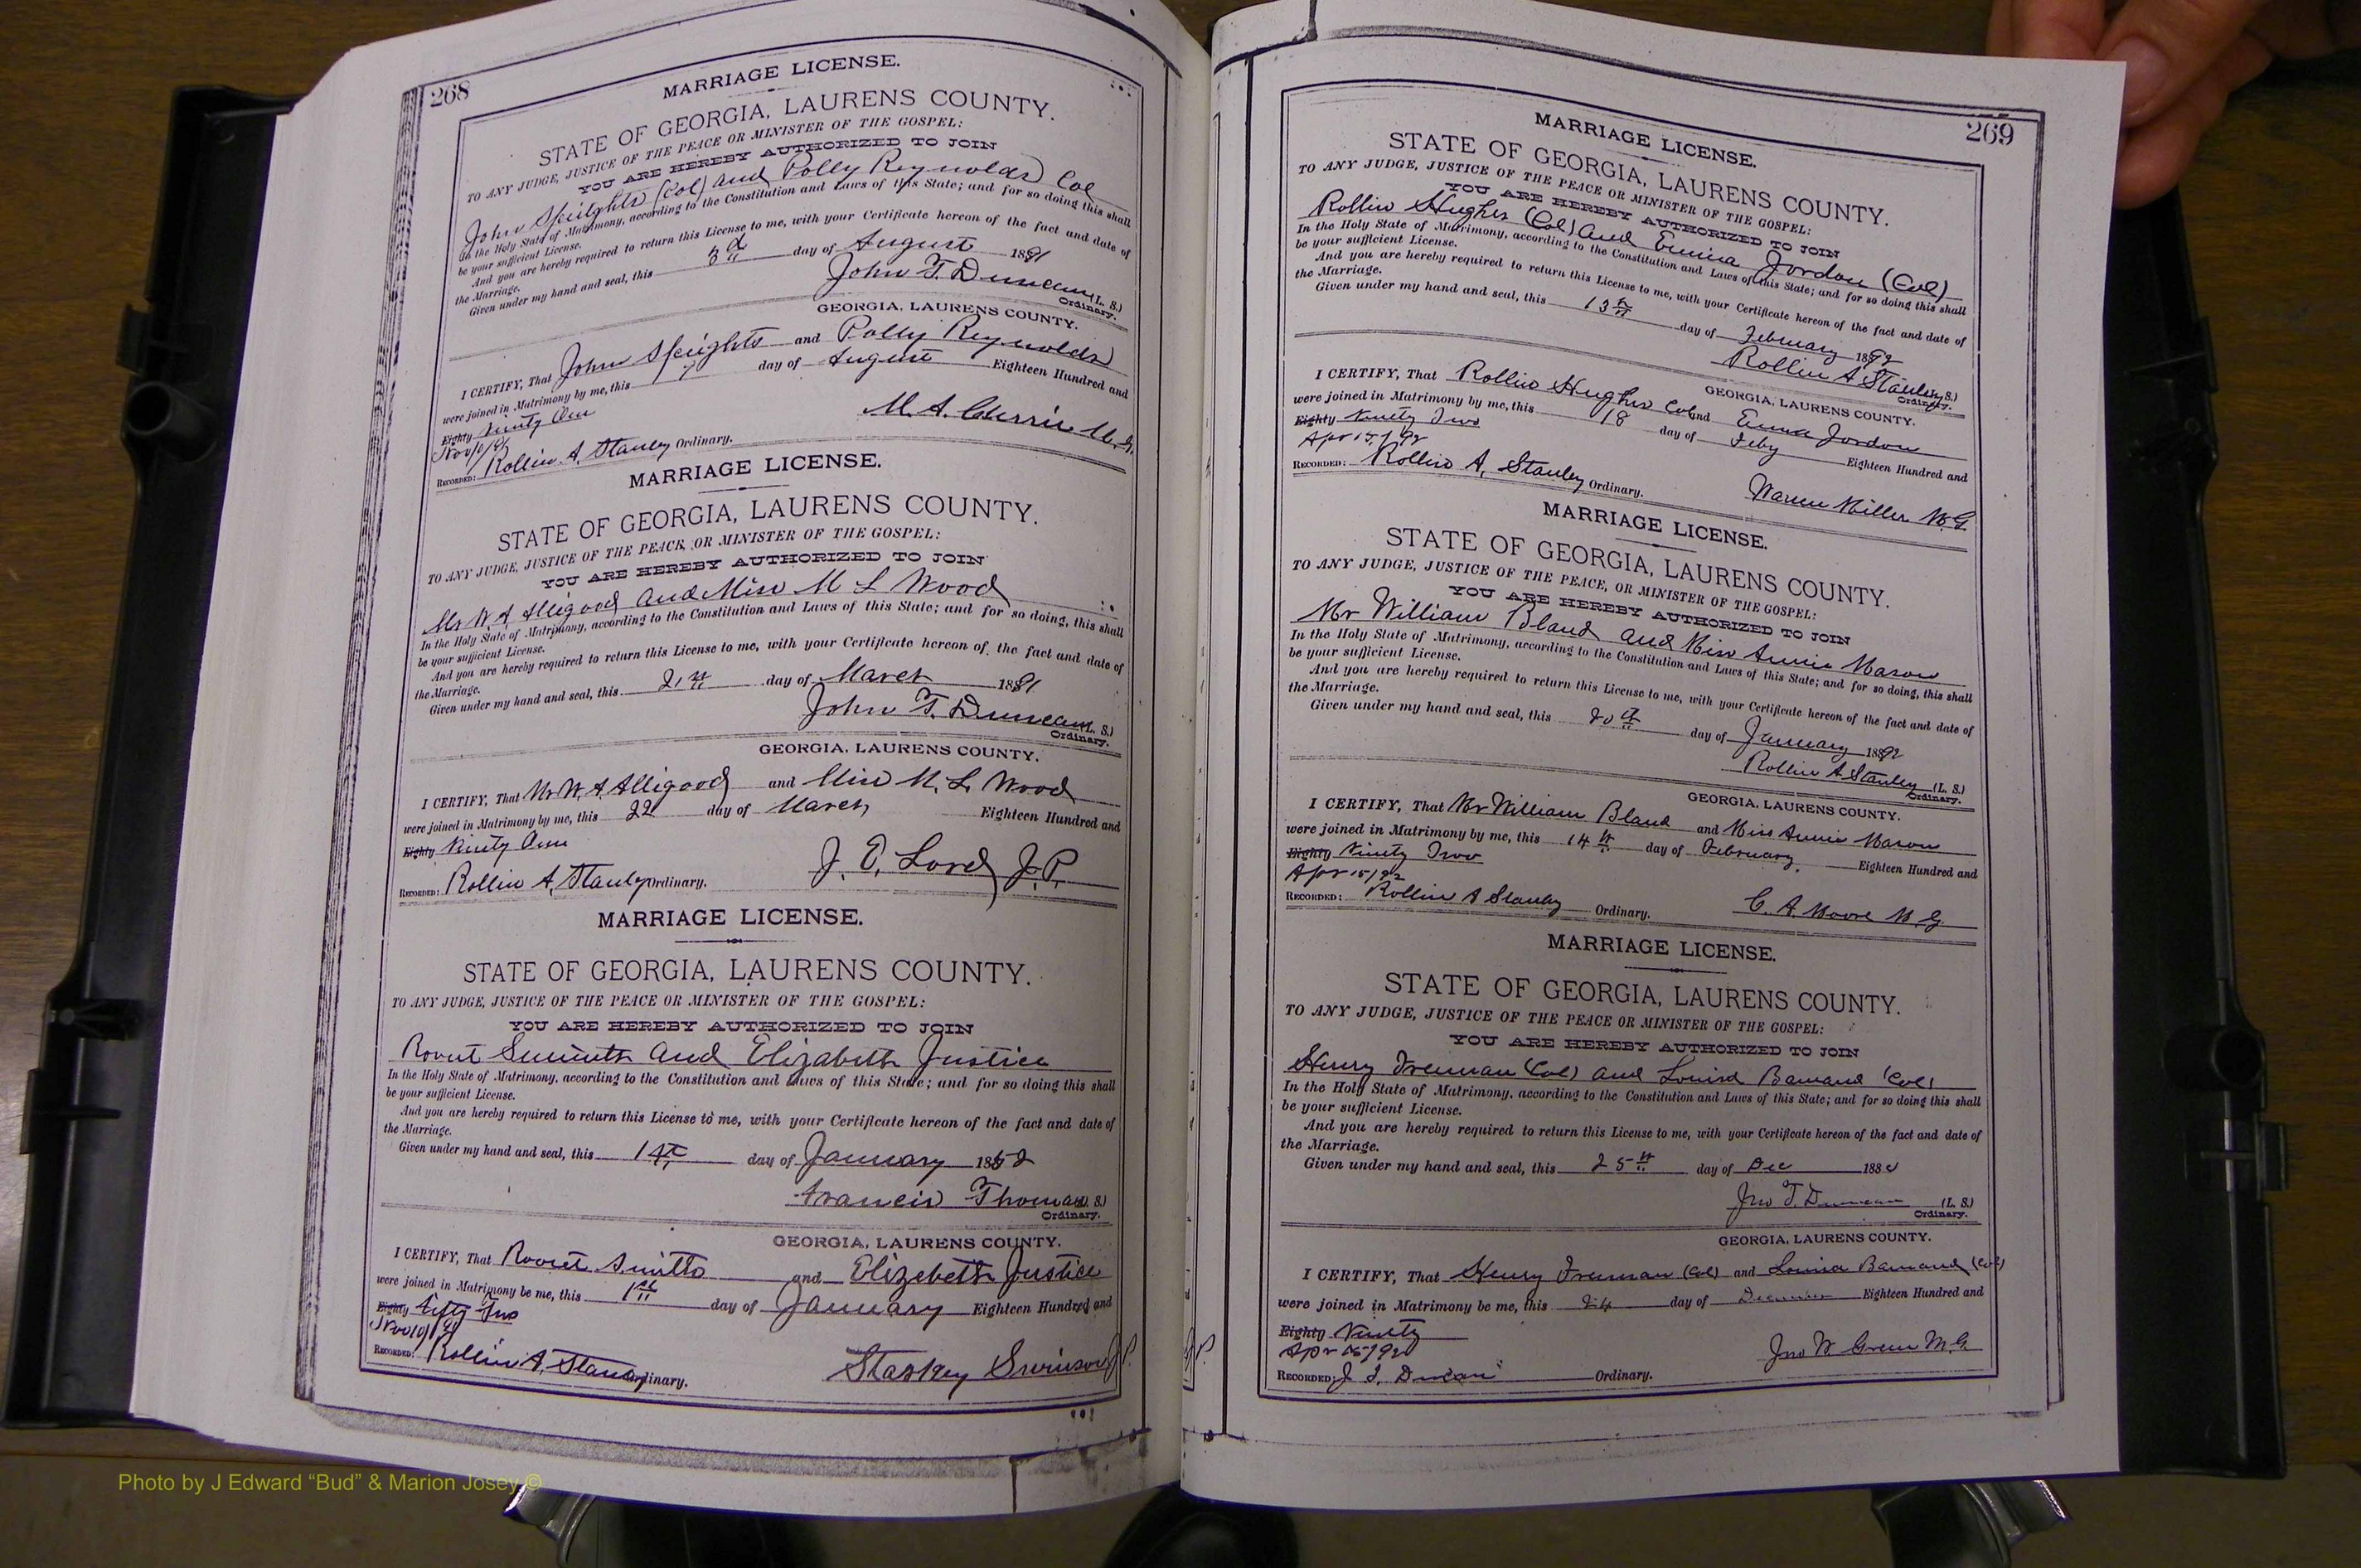 268
MARRIAGE LICENSE.
STATE OF GEORGIA, LAURENS COUNTY.
TO ANY JUDGE, JUSTICE OF THE PEACE OR MINISTER OF THE GOSPEL:
YOU ARE HEREBY AUTHORIZED TO JOIN
John Speights (Col) and Polly Reynolds Col
In the Holy State of Matrimony, according to the Constitution and Laws of this State; and for so doing this shall
be your sufficient License.
And you are hereby required to return this License to me, with your Certificate hereon of the fact and date of
the Marriage.
Given under my hand and seal, this 3d day of August 1891
John T. Duncan (L. S.)
Ordinary.
GEORGIA, LAURENS COUNTY.
I CERTIFY, That John Speights and Polly Reynolds
were joined in Matrimony by me, this 7 day of August Eighteen Hundred and
Eighty Ninty One
M. A. Currie M.G.
RECORDED: Rollin A. Stanley Ordinary.
MARRIAGE LICENSE.
STATE OF GEORGIA, LAURENS COUNTY.
TO ANY JUDGE, JUSTICE OF THE PEACE, OR MINISTER OF THE GOSPEL:
YOU ARE HEREBY AUTHORIZED TO JOIN
Mr W. A Alligood and Miss M L Wood
In the Holy State of Matrimony, according to the Constitution and Laws of this State; and for so doing, this shall
be your sufficient License.
And you are hereby required to return this License to me, with your Certificate hereon of the fact and date of
the Marriage.
Given under my hand and seal, this 21 day of March 1891
John T. Duncan (L. S.)
Ordinary.
GEORGIA, LAURENS COUNTY.
I CERTIFY, That Mr W. A Alligood and Miss M. L Wood
were joined in Matrimony by me, this 22 day of March, Eighteen Hundred and
Eighty Ninty One
J. E. Lord J.P.
RECORDED: Rollin A. Stanley Ordinary.
MARRIAGE LICENSE.
STATE OF GEORGIA, LAURENS COUNTY.
TO ANY JUDGE, JUSTICE OF THE PEACE OR MINISTER OF THE GOSPEL:
YOU ARE HEREBY AUTHORIZED TO JOIN
and Elizabeth Justice
In the Holy State of Matrimony, according to the Constitution and Laws of this State; and for so doing this shall
be your sufficient License.
And you are hereby required to return this License to me, with your Certificate hereon of the fact and date of
the Marriage.
Given under my hand and seal, this day of January 1852
Francis Thomas (L. S.)
Ordinary.
GEORGIA, LAURENS COUNTY.
I CERTIFY, That and Elizebeth Justice
were joined in Matrimony be me, this day of January Eighteen Hundred and
Eighty fifty Two
RECORDED: Rollin A. Stanley Ordinary.
269
MARRIAGE LICENSE.
STATE OF GEORGIA, LAURENS COUNTY.
TO ANY JUDGE, JUSTICE OF THE PEACE OR MINISTER OF THE GOSPEL:
YOU ARE HEREBY AUTHORIZED TO JOIN
Rollin Hughes (Col) and Emma Jordon (Col)
In the Holy State of Matrimony, according to the Constitution and Laws of this State; and for so doing this shall
be your sufficient License.
And you are hereby required to return this License to me, with your Certificate hereon of the fact and date of
the Marriage.
Given under my hand and seal, this 13th day of February 1892
Rollin A Stanley (L. S.)
Ordinary.
GEORGIA, LAURENS COUNTY.
I CERTIFY, That Rollin Hughes Col and Emma Jordon
were joined in Matrimony by me, this 18 day of Feby Eighteen Hundred and
Eighty Ninety Two
Apr 15/92
RECORDED: Rollin A, Stanley Ordinary.
Warren Miller M.G.
MARRIAGE LICENSE.
STATE OF GEORGIA, LAURENS COUNTY.
TO ANY JUDGE, JUSTICE OF THE PEACE, OR MINISTER OF THE GOSPEL:
YOU ARE HEREBY AUTHORIZED TO JOIN
Mr William Bland and Miss Annie Mason
In the Holy State of Matrimony, according to the Constitution and Laws of this State; and for so doing, this shall
be your sufficient License.
And you are hereby required to return this License to me, with your Certificate hereon of the fact and date of
the Marriage.
Given under my hand and seal, this 20th day of January 1892
Rollin A Stanley (L. S.)
Ordinary.
GEORGIA, LAURENS COUNTY.
I CERTIFY, That Mr William Bland and Miss Annie Mason
were joined in Matrimony by me, this 14th day of February. Eighteen Hundred and
Eighty Ninety Two
Apr 15/92
RECORDED: Rollin A Stanley Ordinary.
C. A. Moore M.G
MARRIAGE LICENSE.
STATE OF GEORGIA, LAURENS COUNTY.
TO ANY JUDGE, JUSTICE OF THE PEACE OR MINISTER OF THE GOSPEL:
YOU ARE HEREBY AUTHORIZED TO JOIN
Henry Freeman (Col) and (Col)
In the Holy State of Matrimony, according to the Constitution and Laws of this State; and for so doing this shall
be your sufficient License.
And you are hereby required to return this License to me, with your Certificate hereon of the fact and date of
the Marriage.
Given under my hand and seal, this 25th day of Dec 188
Jno T. Duncan (L. S.)
Ordinary.
GEORGIA, LAURENS COUNTY.
I CERTIFY, That Henry Freeman (Col) and (Col)
were joined in Matrimony be me, this 24 day of December Eighteen Hundred and
Eighty Ninety
Apr 15/92
Jno W Green M.G.
RECORDED: J. T. Duncan Ordinary.
Photo by J Edward “Bud” & Marion Josey ©